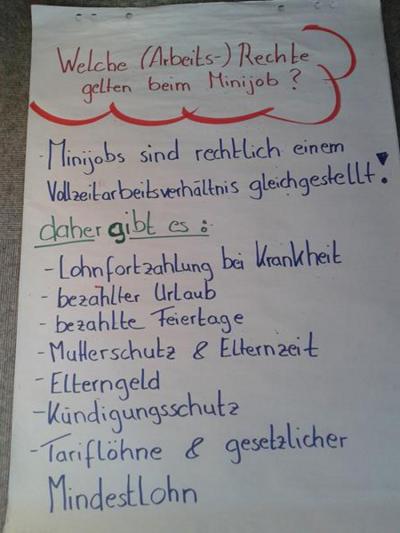 Welche (Arbeits-) Rechte
gelten beim Minijob ?
- Minijobs sind rechtlich einem
Vollzeitarbeitsverhältnis gleichgestellt!
daher gibt es :
- Lohnfortzahlung bei Krankheit
- bezahlter Urlaub
- bezahlte Feiertage
- Mutterschutz & Elternzeit
- Elterngeld
- Kündigungsschutz
- Tariflöhne & gesetzlicher
Mindestlohn